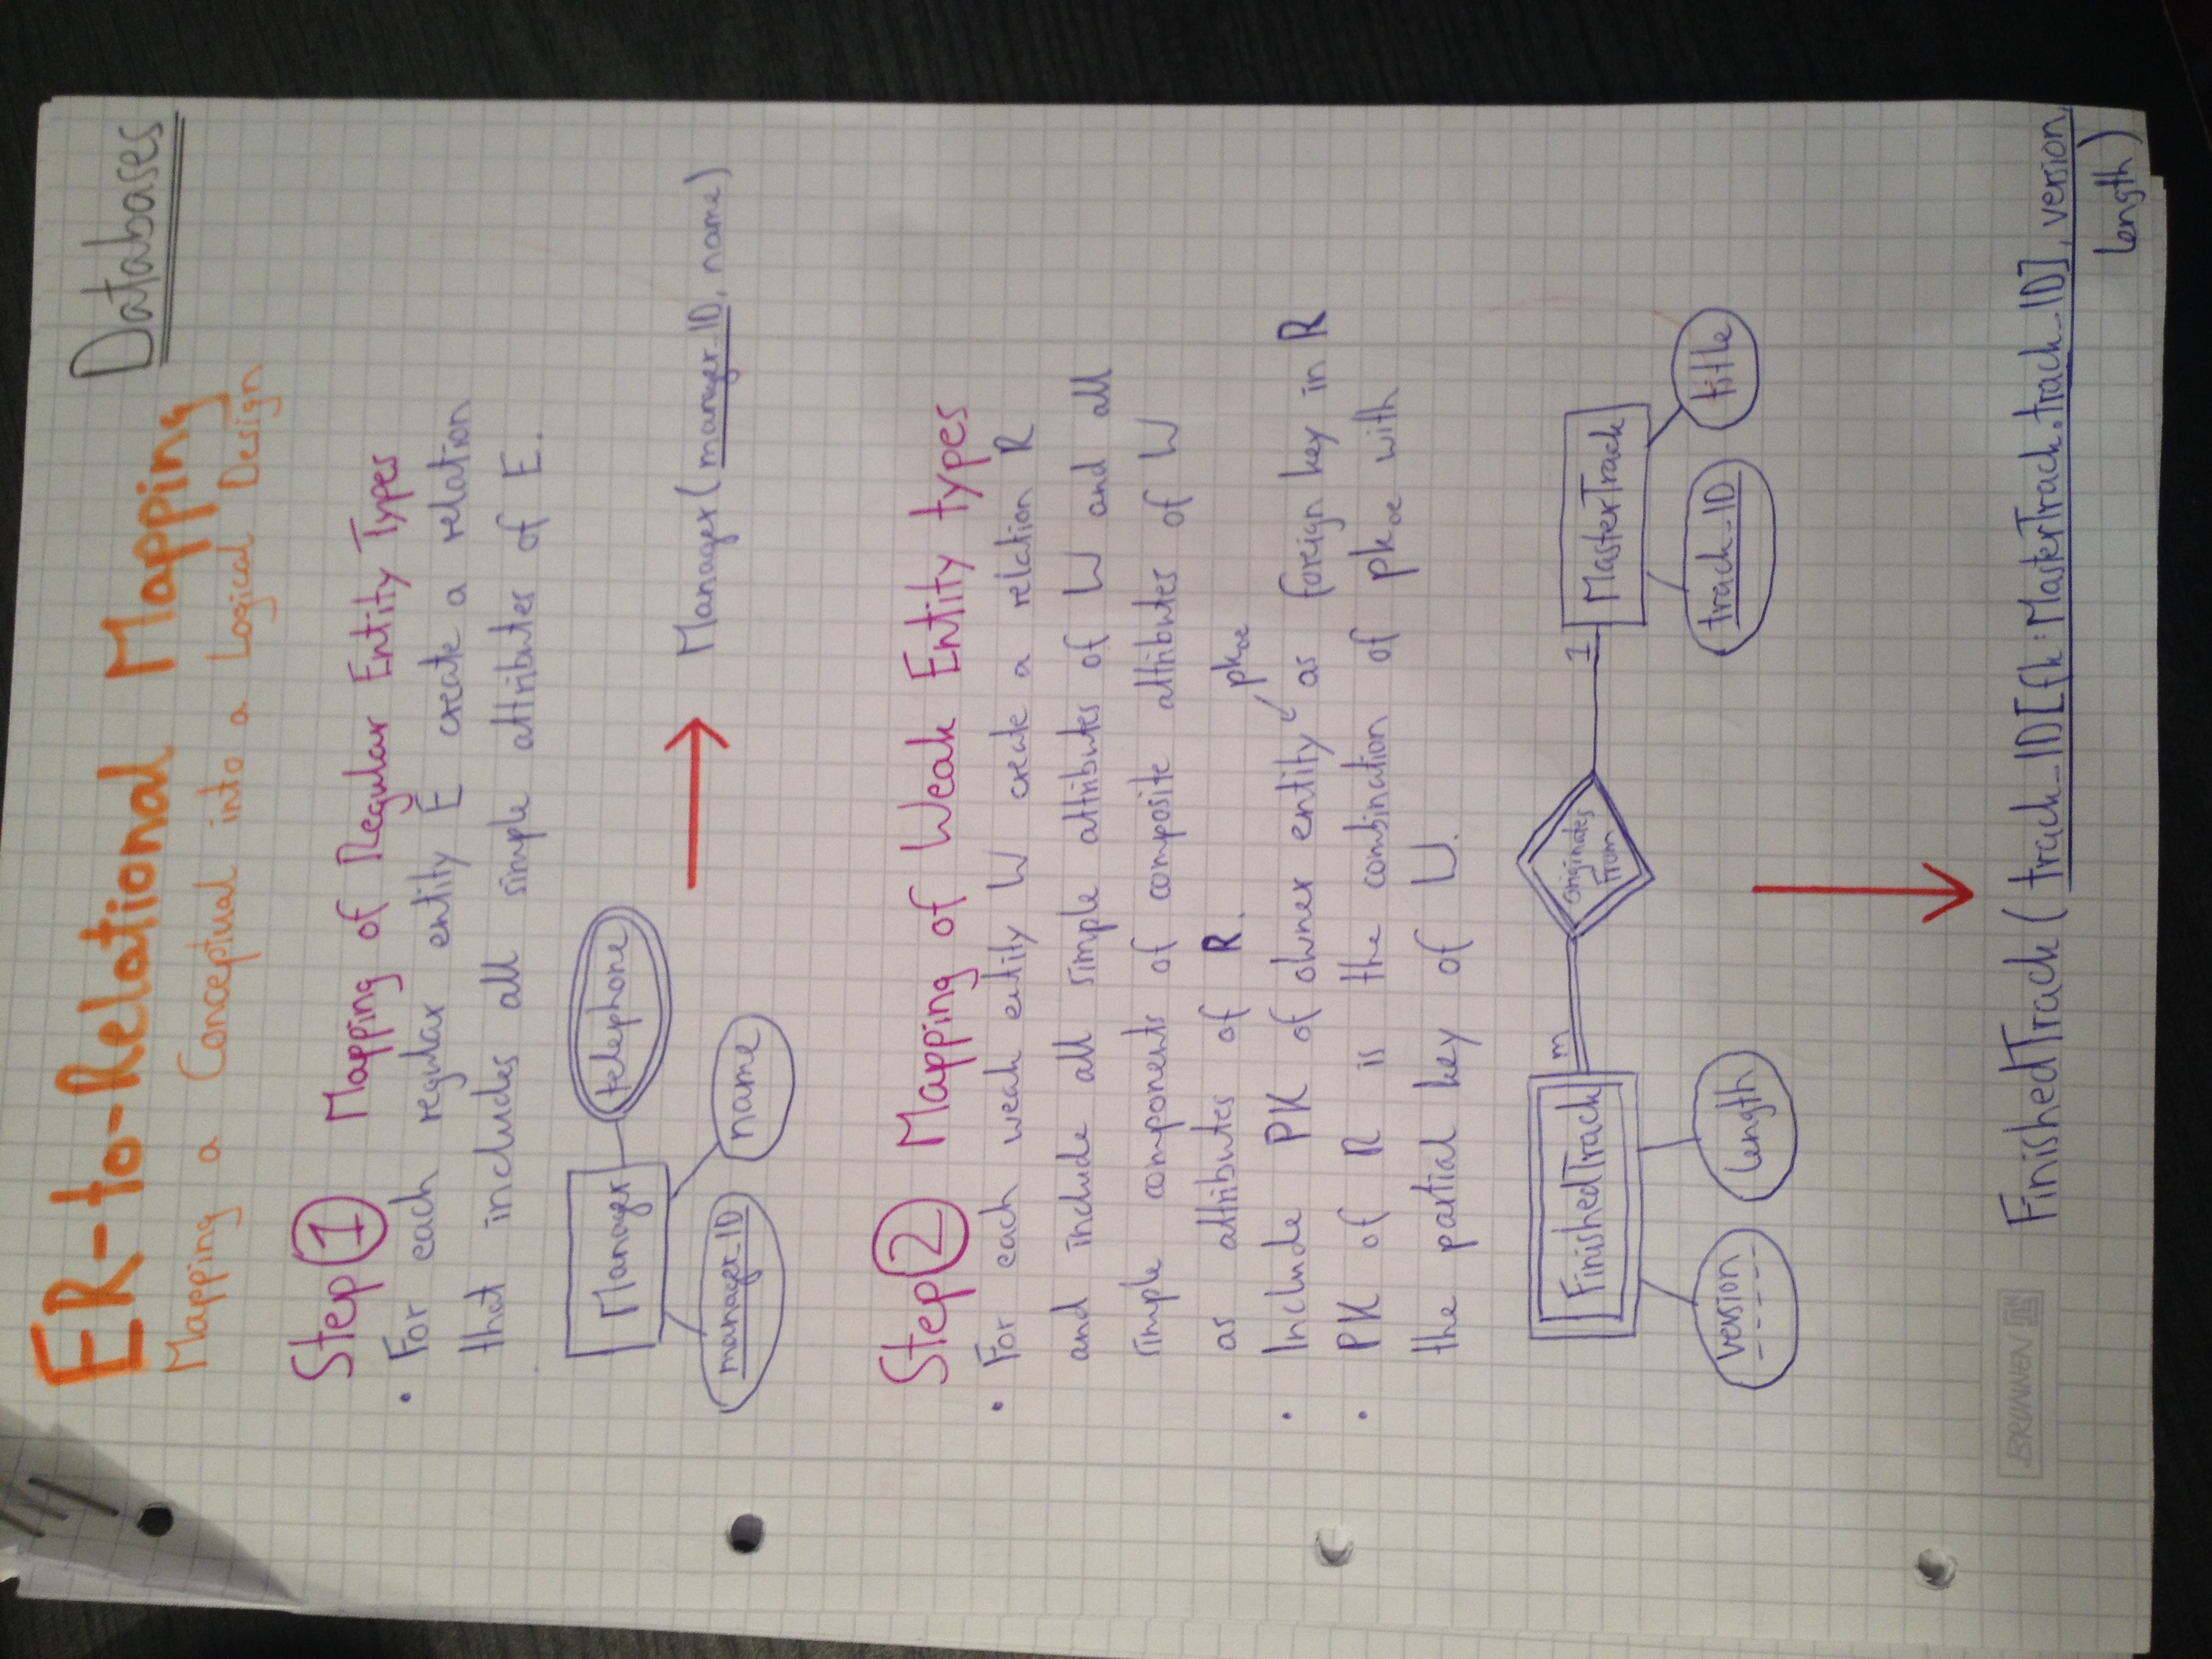 ER-to-Relational Mapping
Databases
Mapping a Conceptual into a Logical Design
Step 1 Mapping of Regular Entity Types
• For each regular entity E create a relation
that includes all simple attributes of E.
Manager
telephone
manager_ID
name
Manager(manager_ID, name)
Step 2 Mapping of Weak Entity types
• For each weak entity W create a relation R
and include all simple attributes of W and all
simple components of composite attributes of W
as attributes of R.
pkoe
• Include PK of owner entity as foreign key in R
• PK of R is the combination of pkoe with
the partial key of W.
FinishedTrack
m
Originates
From
1
MasterTrack
version
length
track_ID
title
BRUNNEN
FinishedTrack(track_ID[fk:MasterTrack.track_ID], version,
length)